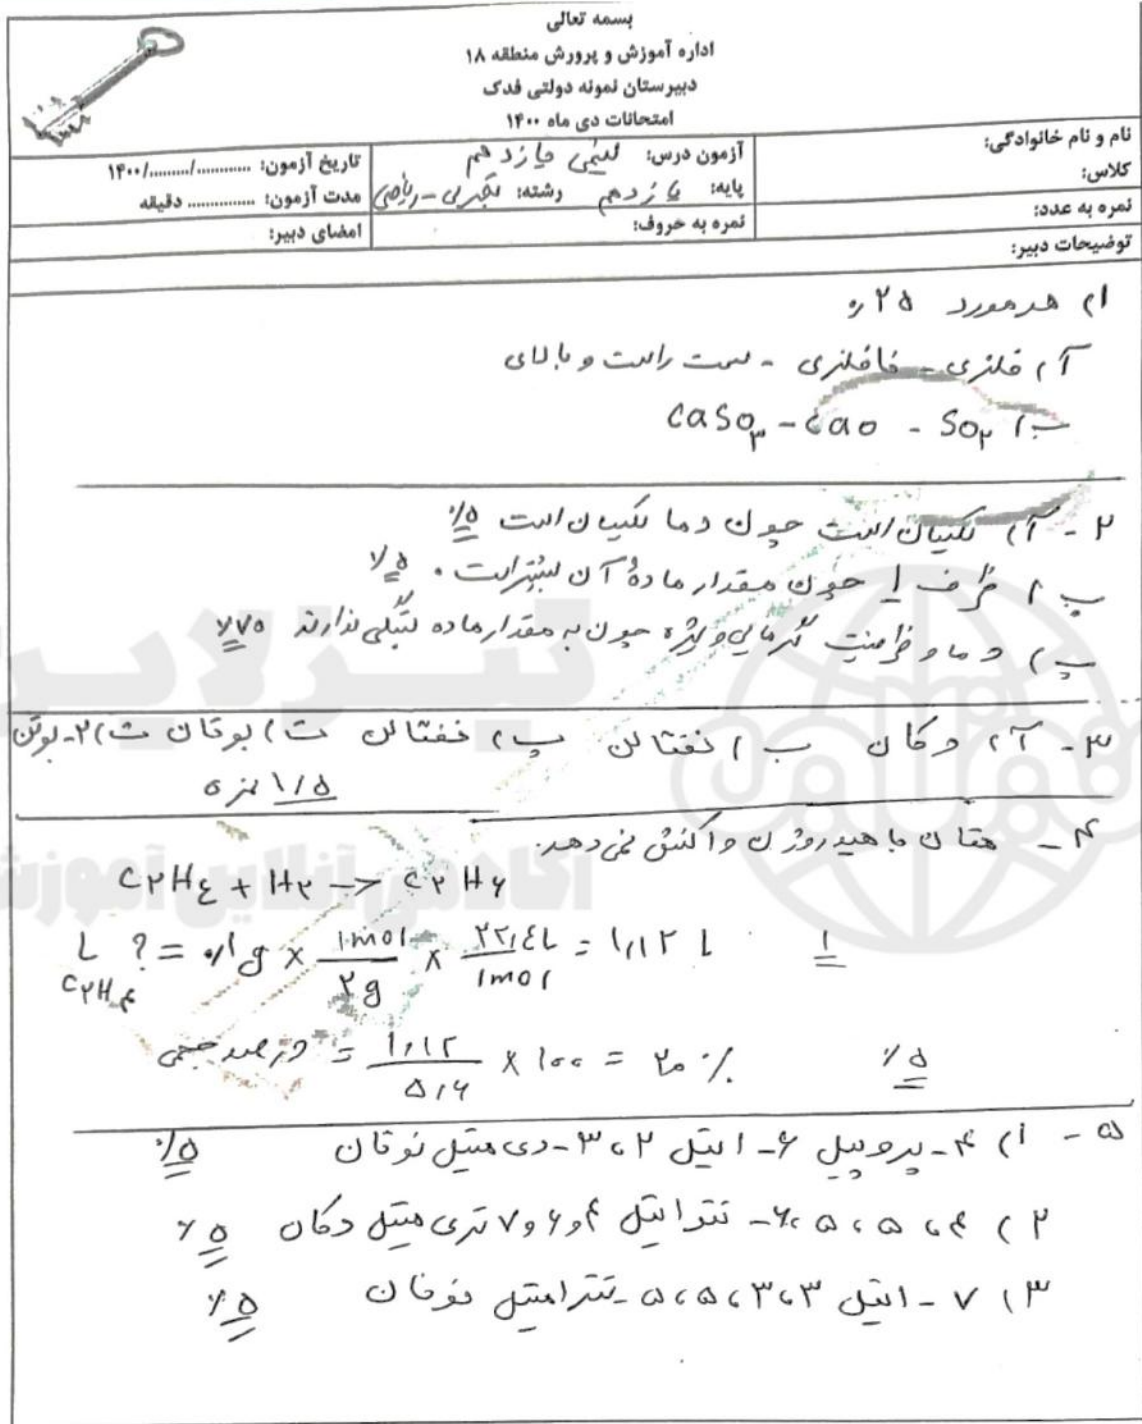 بسمه تعالی
اداره آموزش و پرورش منطقه ۱۸
دبیرستان نمونه دولتی فدک
امتحانات دی ماه ۱۴۰۰
نام و نام خانوادگی:
کلاس:
نمره به عدد:
آزمون درس: شیمی یازدهم
پایه: یازدهم رشته: تجربی - ریاضی
نمره به حروف:
تاریخ آزمون: ............/........./۱۴۰۰
مدت آزمون: ............... دقیقه
امضای دبیر:
توضیحات دبیر:
۱) هر مورد ۲۵ر۰
آ) فلزی - نافلزی - سمت راست و بالای
ب) CaSO۳ - CaO - SO۲
۲ - آ) یکسان است چون دما یکسان است ۵/۰
ب) ظرف ۱ چون مقدار ماده آن بیشتر است. ۵/۰
پ) دما و ظرفیت گرمایی ویژه چون به مقدار ماده بستگی ندارند ۷۵/۰
۳- آ) دکان ب) نفتالن پ) نفتالن ت) بوتان ث) ۲-بوتن
۱/۵ نمره
۴ - متان با هیدروژن واکنش نمی دهد.
C۲H٤ + H۲ -> C۲H۶
L C۲H۴ ? = ۰/۱ g × ۱mol/۲g × ۲۲,٤L/۱mol = ۱,۱۲ L ۱
درصد حجمی = ۱,۱۲/۵,۶ × ۱۰۰ = ۲۰ % ۵/۰
۵ - ۱) ۴- پروپیل ۶- اتیل ۲، ۳- دی متیل نونان ۵/۰
۲) ۴، ۵، ۵، ۶- تترا اتیل ۴ و ۶ و ۷ تری متیل دکان ۵/۰
۳) ۷ - اتیل ۳، ۳، ۵، ۵- تترامتیل نونان ۵/۰
تیزلاین
آکادمی آنلاین آموزش